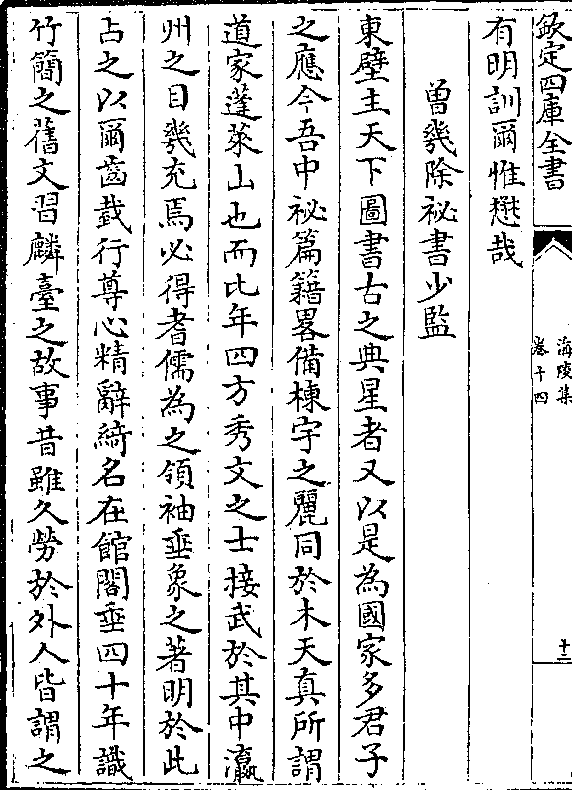 欽定四庫全書
海陵集
卷十四
十三
有明訓爾惟懋哉
曾幾除祕書少監
東壁主天下圖書古之典星者又以是為國家多君子
之應今吾中祕篇籍畧備棟宇之麗同於木天真所謂
道家蓬萊山也而比年四方秀文之士接武於其中瀛
州之目幾充焉必得耆儒為之領袖垂象之著明於此
占之以爾齒㦲行尊心精辭綺名在館閣垂四十年識
竹簡之舊文習麟臺之故事昔雖久勞於外人皆謂之